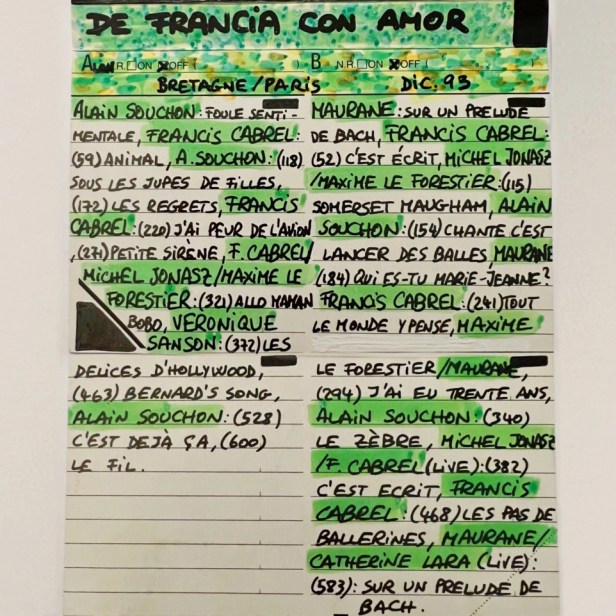 DE FRANCIA CON AMOR
A N.R. □ON ☒OFF ( ) B N.R. □ON ☒OFF ( )
BRETAGNE/PARÍS DIC. 93
ALAIN SOUCHON: FOULE SENTI-
MENTALE, FRANCIS CABREL:
(59) ANIMAL, A. SOUCHON: (118)
SOUS LES JUPES DE FILLES,
(172) LES REGRETS, FRANCIS
CABREL: (220) J'AI PEUR DE L'AVION
, (271) PETITE SIRÈNE, F. CABREL/
MICHEL JONASZ/MAXIME LE
FORESTIER: (321) ALLO MAMAN
BOBO, VERONIQUE
SANSON: (372) LES
DELICES D'HOLLYWOOD,
(463) BERNARD'S SONG,
ALAIN SOUCHON: (528)
C'EST DEJÀ ÇA, (600)
LE FIL.
MAURANE: SUR UN PRELUDE
DE BACH, FRANCIS CABREL:
(52) C'EST ÉCRIT, MICHEL JONASZ
/MAXIME LE FORESTIER: (115)
SOMERSET MAUGHAM, ALAIN
SOUCHON: (154) CHANTE C'EST
LANCER DES BALLES, MAURANE
(184) QUI ES-TU MARIE-JEANNE?
FRANCIS CABREL: (241) TOUT
LE MONDE Y PENSE, MAXIME
LE FORESTIER/MAURANE,
(294) J'AI EU TRENTE ANS,
ALAIN SOUCHON: (340)
LE ZÈBRE, MICHEL JONASZ
/F. CABREL (LIVE): (382)
C'EST ECRIT, FRANCIS
CABREL: (468) LES PAS DE
BALLERINES, MAURANE/
CATHERINE LARA (LIVE):
(583): SUR UN PRELUDE DE
BACH.